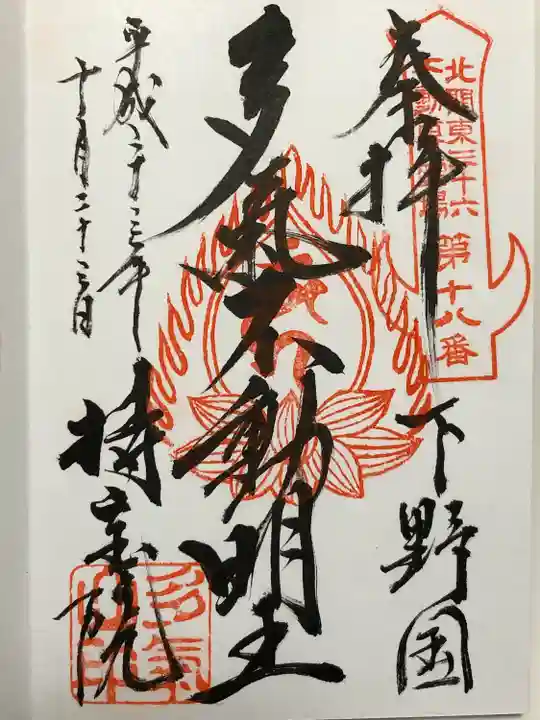 奉拝
下野国
北関東三十六
不動尊霊場
第十八番
多気不動明王
平成二十三年
十二月二十三日
持宝院